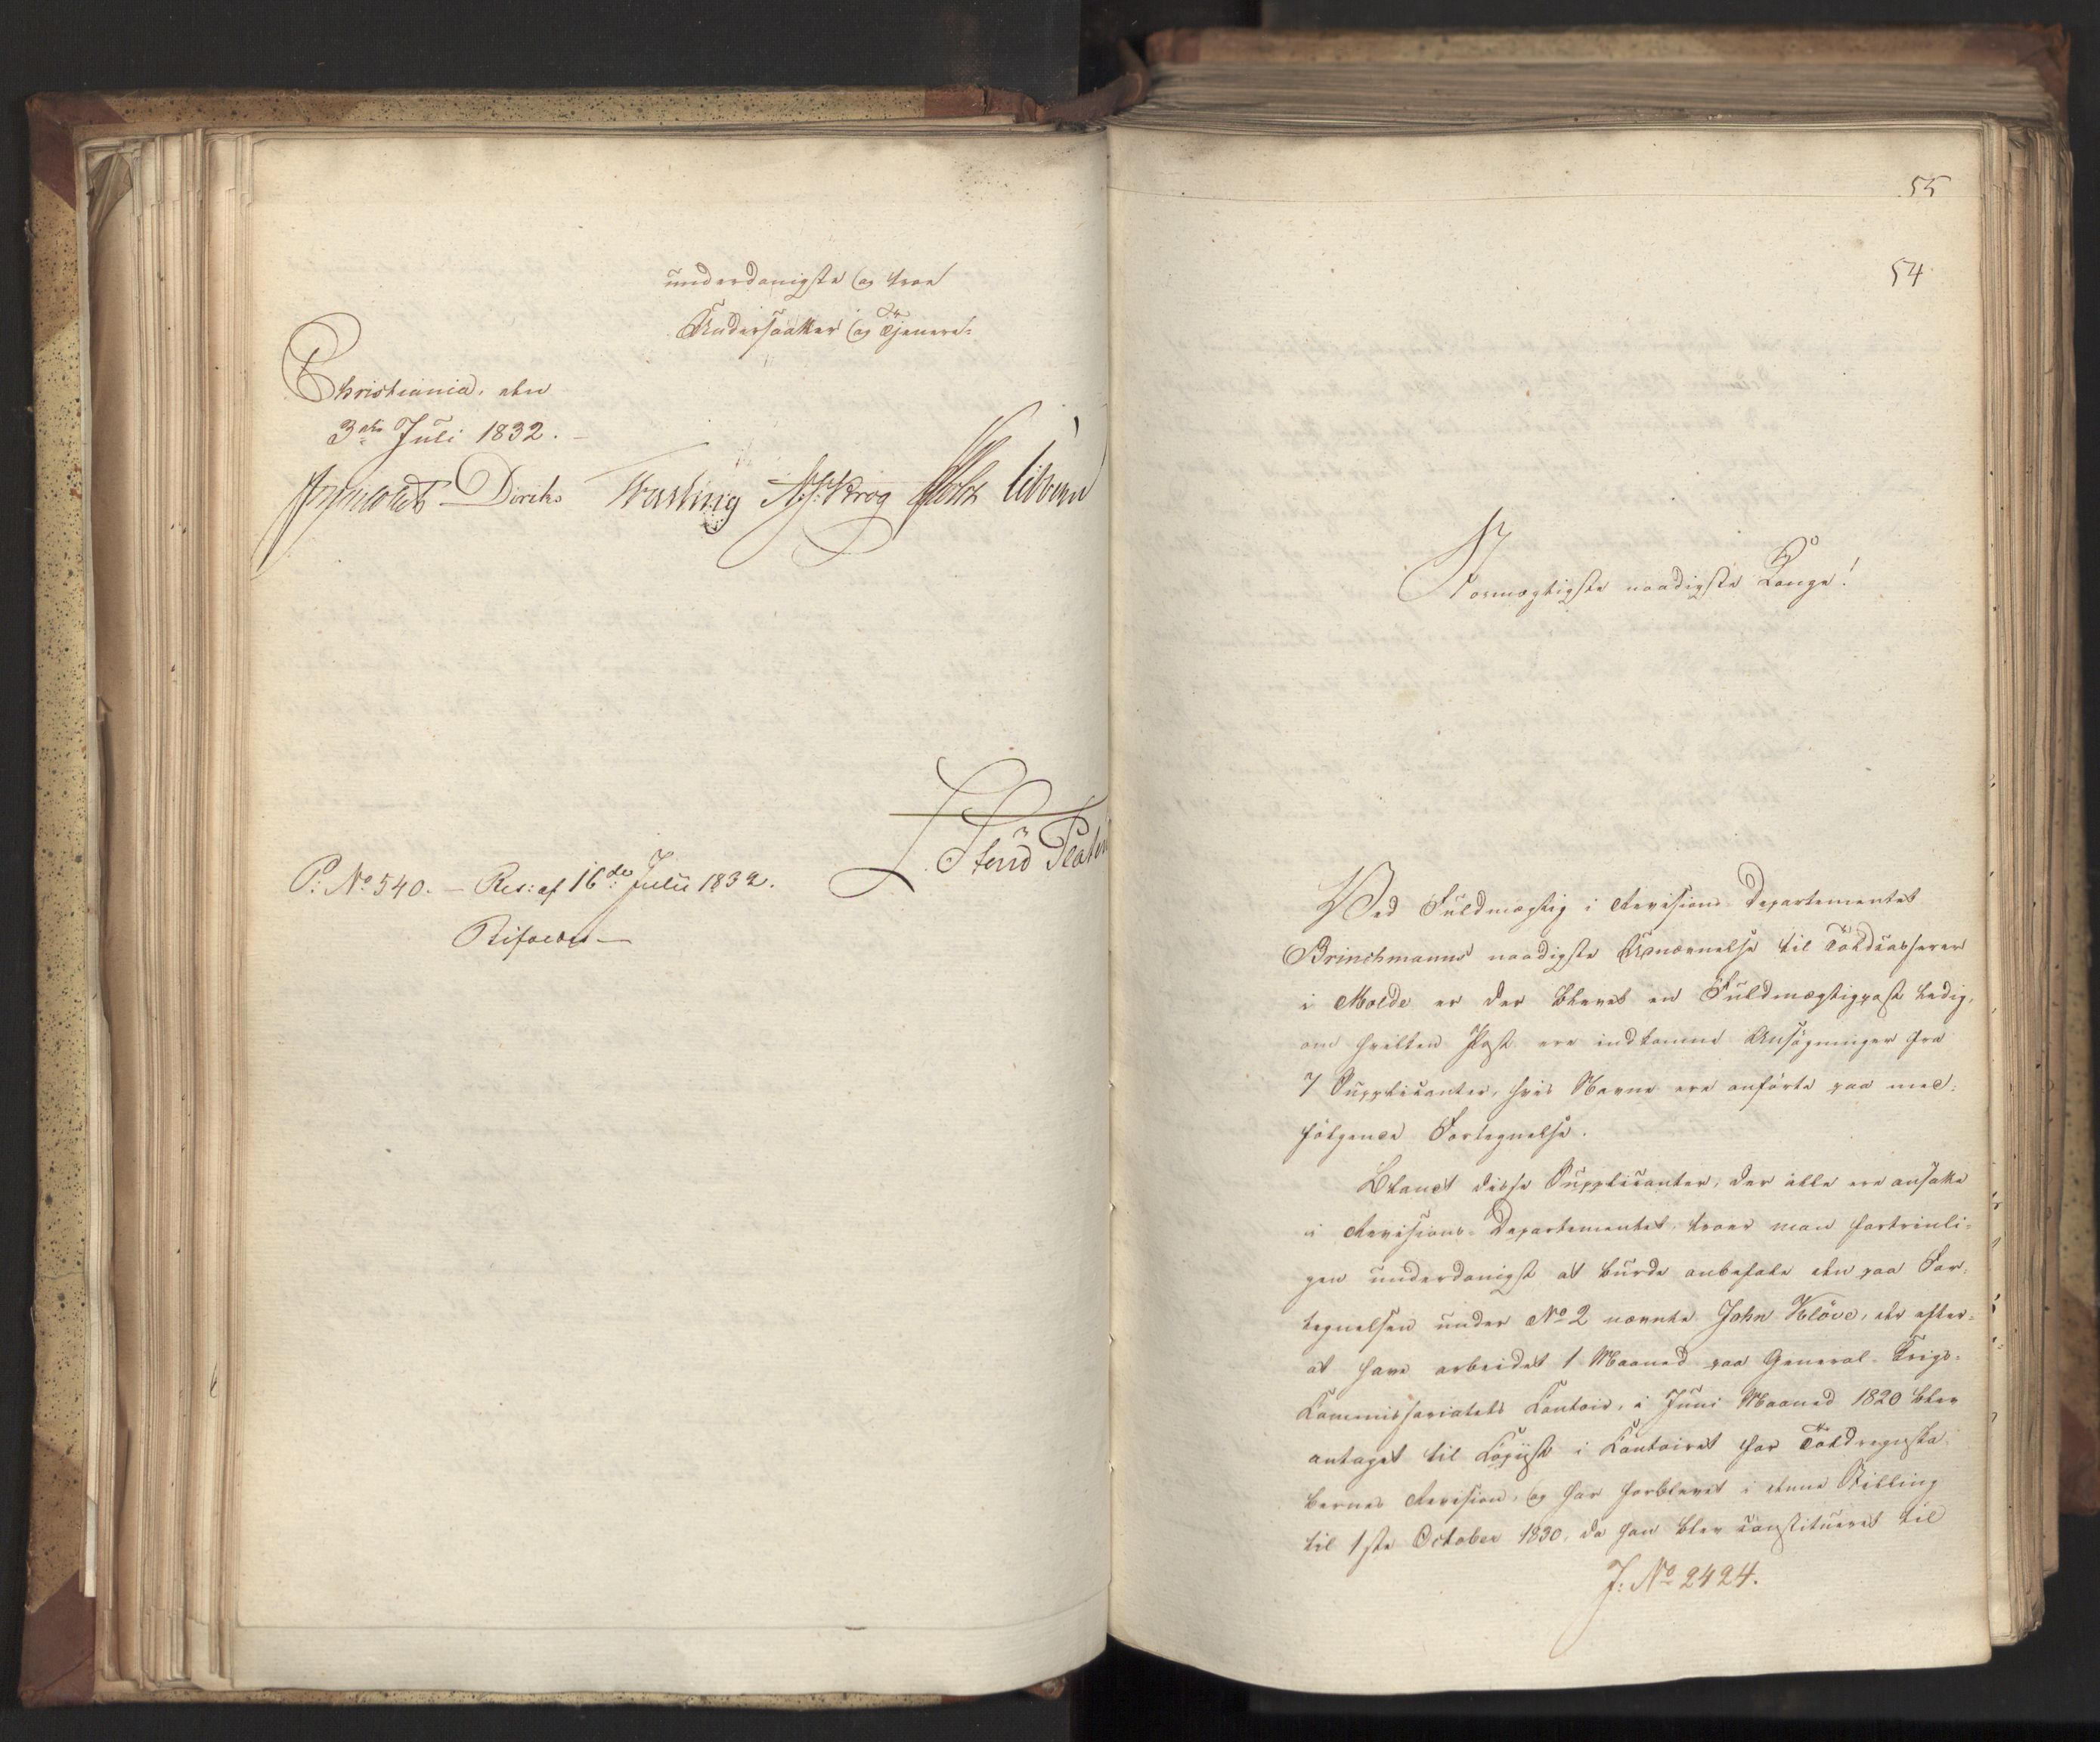 underdanigste og troe
Undersaatter og Tjenere.
Christiania, den
3die Juli 1832.
Diriks Vasling Krog Holst
P: No 540. — Res: af 16de Julii 1832.
Bifaldes —
55
54
Stormægtigste naadigste Konge!
Ved Fuldmægtig i Revisions-Departementet
Brinchmanns naadigste Udnævnelse til Toldcasserer
i Molde er der blevet en Fuldmægtigpost ledig,
om hvilken Post ere indkomne Ansögninger fra
7 Supplicanter, hvis Navne ere anförte paa med-
fölgende Fortegnelse.
Blandt disse Supplicanter, der alle ere ansatte
i Revisions-Departementet, troer man fortrinli-
gen underdanigst at burde anbefale den paa For-
tegnelsen under No 2 nævnte John Klöve, der efter
at have arbeidet 1 Maaned paa General-Krigs-
Commissariatets Contoir, i Juni Maaned 1820 blev
antaget til Copiist i Contoiret for Toldregnska-
bernes Revision, og har forblevet i denne Stilling
til 1ste October 1830, da han blev constitueret til
J: No 2424.